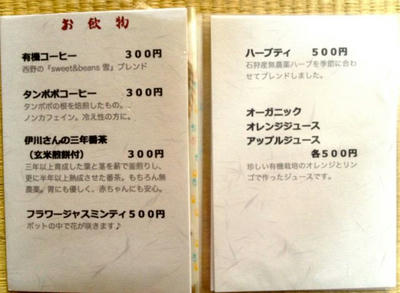 お飲物
有機コーヒー 300円
西野の「sweet&beans 雪」ブレンド
タンポポコーヒー 300円
タンポポの根を焙煎したもの。
ノンカフェイン。冷え性の方に。
伊川さんの三年番茶
（玄米煎餅付） 300円
三年以上育成した葉と茎を薪で釜煎りし、
更に半年以上熟成させた番茶。もちろん無
農薬。胃にも優しく、赤ちゃんにも安心。
フラワージャスミンティ 500円
ポットの中で花が咲きます♪
ハーブティ 500円
石狩産無農薬ハーブを季節に合わ
せてブレンドしました。
オーガニック
オレンジジュース
アップルジュース
各500円
珍しい有機栽培のオレンジとリン
ゴで作ったジュースです。